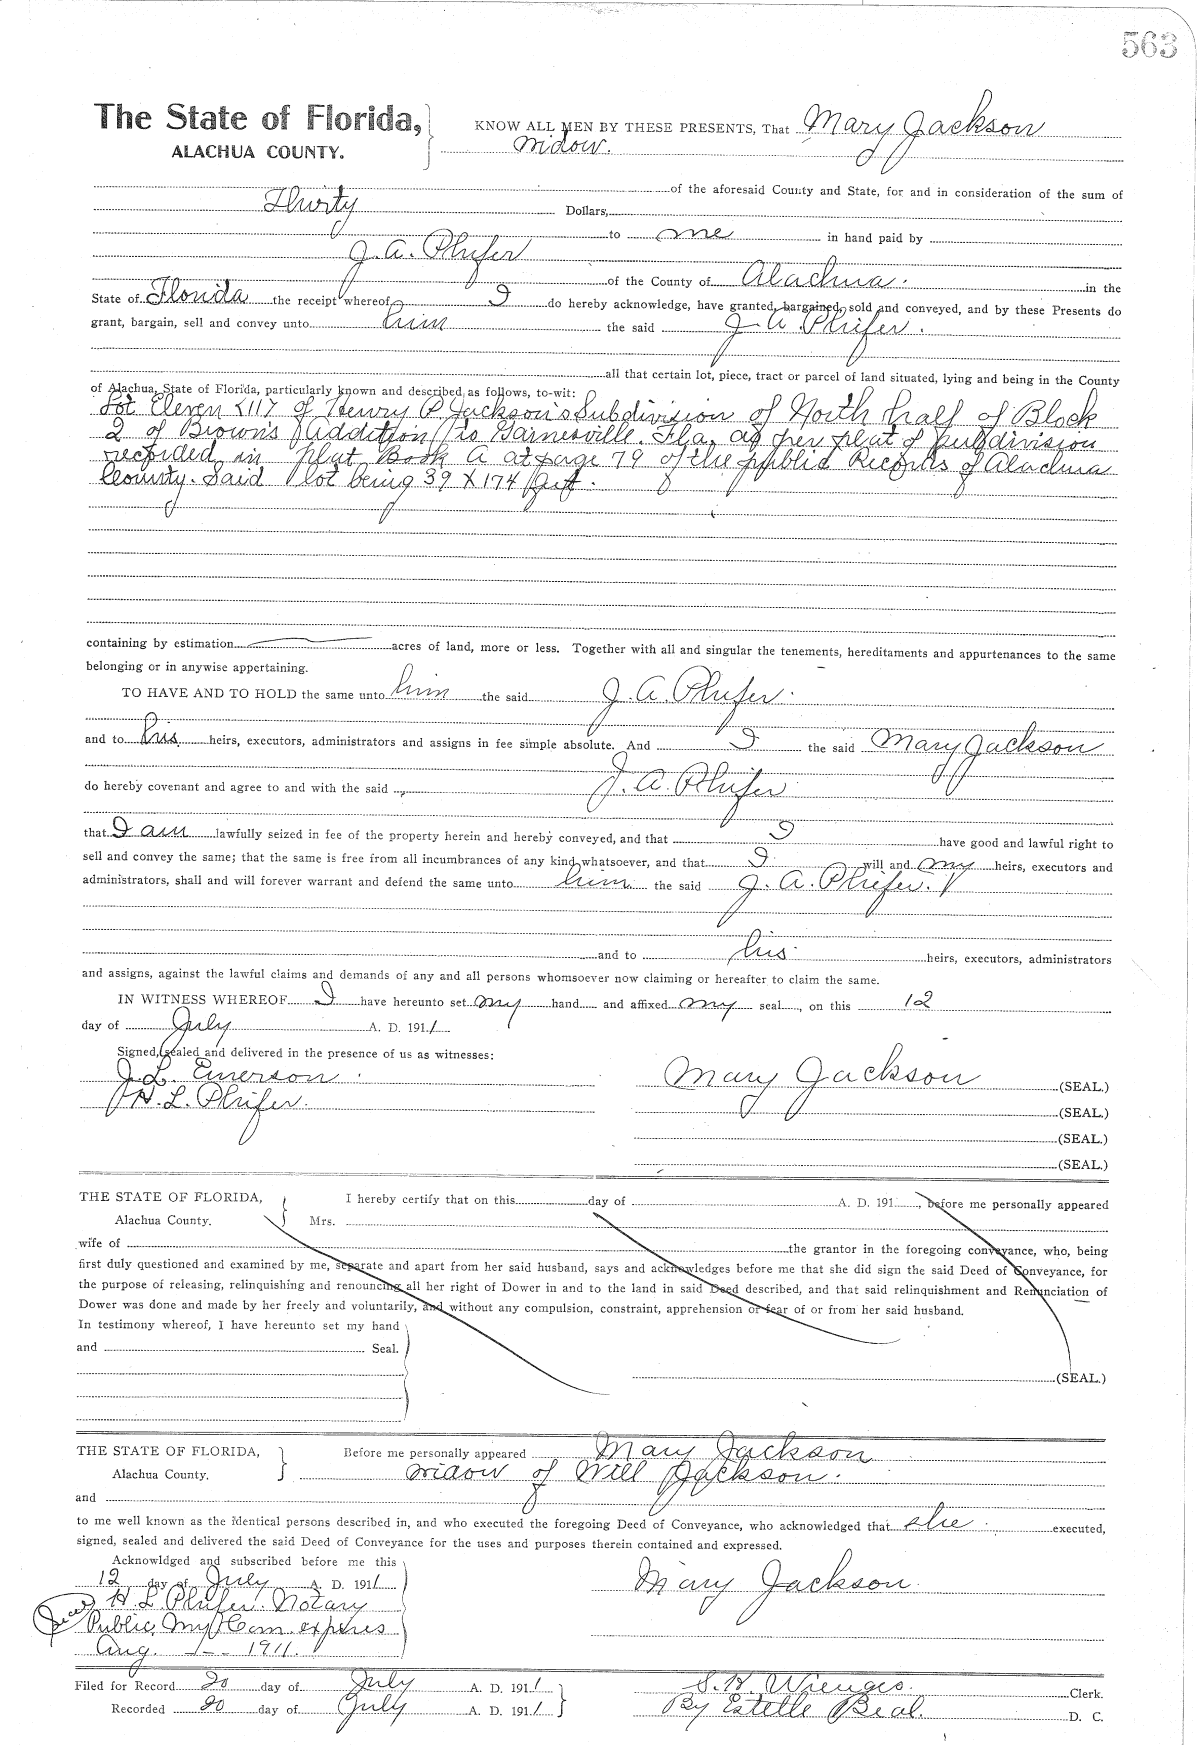 563
The State of Florida,
ALACHUA COUNTY.
KNOW ALL MEN BY THESE PRESENTS, That Mary Jackson
widow.
of the aforesaid County and State, for and in consideration of the sum of
Thirty Dollars,
to me in hand paid by
J. A. Phifer
of the County of Alachua. in the
State of Florida the receipt whereof I do hereby acknowledge, have granted, bargained, sold and conveyed, and by these Presents do
grant, bargain, sell and convey unto him the said J. A. Phifer.
all that certain lot, piece, tract or parcel of land situated, lying and being in the County
of Alachua, State of Florida, particularly known and described as follows, to-wit:
Lot Eleven <11> of Henry P. Jackson's Subdivision of North half of Block
2 of Brown's Addition to Gainesville. Fla, as per plat of subdivision
recorded in plat Book A at page 79 of the public Records of Alachua
County. Said lot being 39 X 174 feet.
containing by estimation acres of land, more or less. Together with all and singular the tenements, hereditaments and appurtenances to the same
belonging or in anywise appertaining.
TO HAVE AND TO HOLD the same unto him the said J. A. Phifer.
and to his heirs, executors, administrators and assigns in fee simple absolute. And I the said Mary Jackson
do hereby covenant and agree to and with the said J. A. Phifer
that I am lawfully seized in fee of the property herein and hereby conveyed, and that I have good and lawful right to
sell and convey the same; that the same is free from all incumbrances of any kind whatsoever, and that I will and my heirs, executors and
administrators, shall and will forever warrant and defend the same unto him the said J. A. Phifer.
and to his heirs, executors, administrators
and assigns, against the lawful claims and demands of any and all persons whomsoever now claiming or hereafter to claim the same.
IN WITNESS WHEREOF I have hereunto set my hand and affixed my seal, on this 12
day of July A. D. 1911
Signed, sealed and delivered in the presence of us as witnesses:
J. L. Emerson.
H. L. Phifer.
Mary Jackson (SEAL.)
(SEAL.)
(SEAL.)
(SEAL.)
THE STATE OF FLORIDA,
Alachua County.
I hereby certify that on this day of A. D. 191 , before me personally appeared
Mrs.
wife of the grantor in the foregoing conveyance, who, being
first duly questioned and examined by me, separate and apart from her said husband, says and acknowledges before me that she did sign the said Deed of Conveyance, for
the purpose of releasing, relinquishing and renouncing all her right of Dower in and to the land in said Deed described, and that said relinquishment and Renunciation of
Dower was done and made by her freely and voluntarily, and without any compulsion, constraint, apprehension or fear of or from her said husband.
In testimony whereof, I have hereunto set my hand
and Seal.
(SEAL.)
THE STATE OF FLORIDA,
Alachua County.
Before me personally appeared Mary Jackson
widow of Will Jackson.
and
to me well known as the identical persons described in, and who executed the foregoing Deed of Conveyance, who acknowledged that she executed,
signed, sealed and delivered the said Deed of Conveyance for the uses and purposes therein contained and expressed.
Acknowldged and subscribed before me this
12 day of July A. D. 1911
Mary Jackson.
Seal H L Phifer. Notary
Public, My Com. expires
Aug. 1911.
Filed for Record 20 day of July A. D. 1911
Recorded 20 day of July A. D. 1911
S. H. Wienges. Clerk.
By Estelle Beal. D. C.